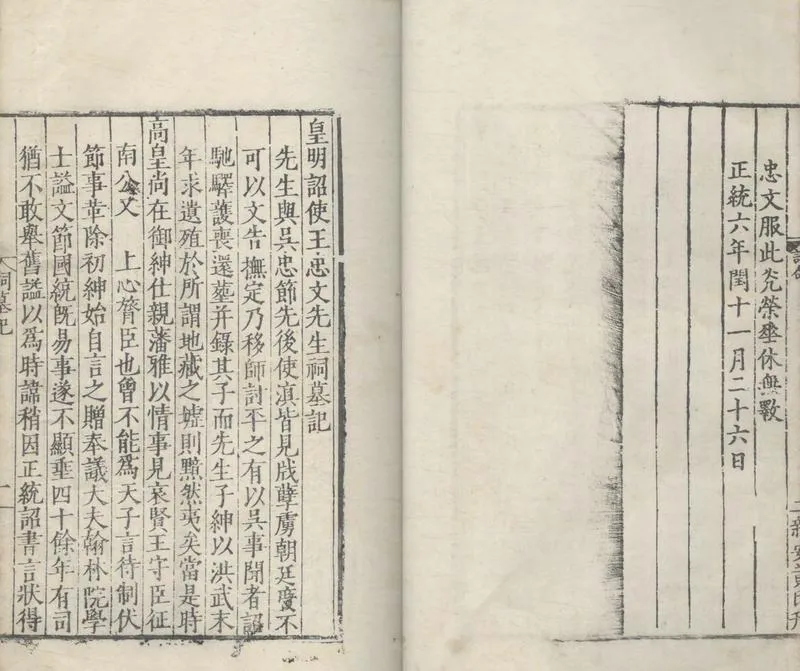 忠文服此光榮垂休無斁
正統六年閏十一月二十六日
皇明詔使王忠文先生祠墓記
先生與吳忠節先後使滇皆見戕孽虜朝廷度不
可以文告撫定乃移師討平之有以吳事聞者詔
馳驛護喪還塟并錄其子而先生子紳以洪武末
年求遺殖於所謂地藏之墟則黯然夷矣當是時
高皇尚在御紳仕親藩雅以情事見哀賢王守臣征
南公又 上心膂臣也曾不能爲天子言待制伏
節事革除初紳始自言之贈奉議大夫翰林院學
士謚文節國統旣易事遂不顯垂四十餘年有司
猶不敢舉舊謚以爲時諱稍因正統詔書言狀得
祠墓記 一